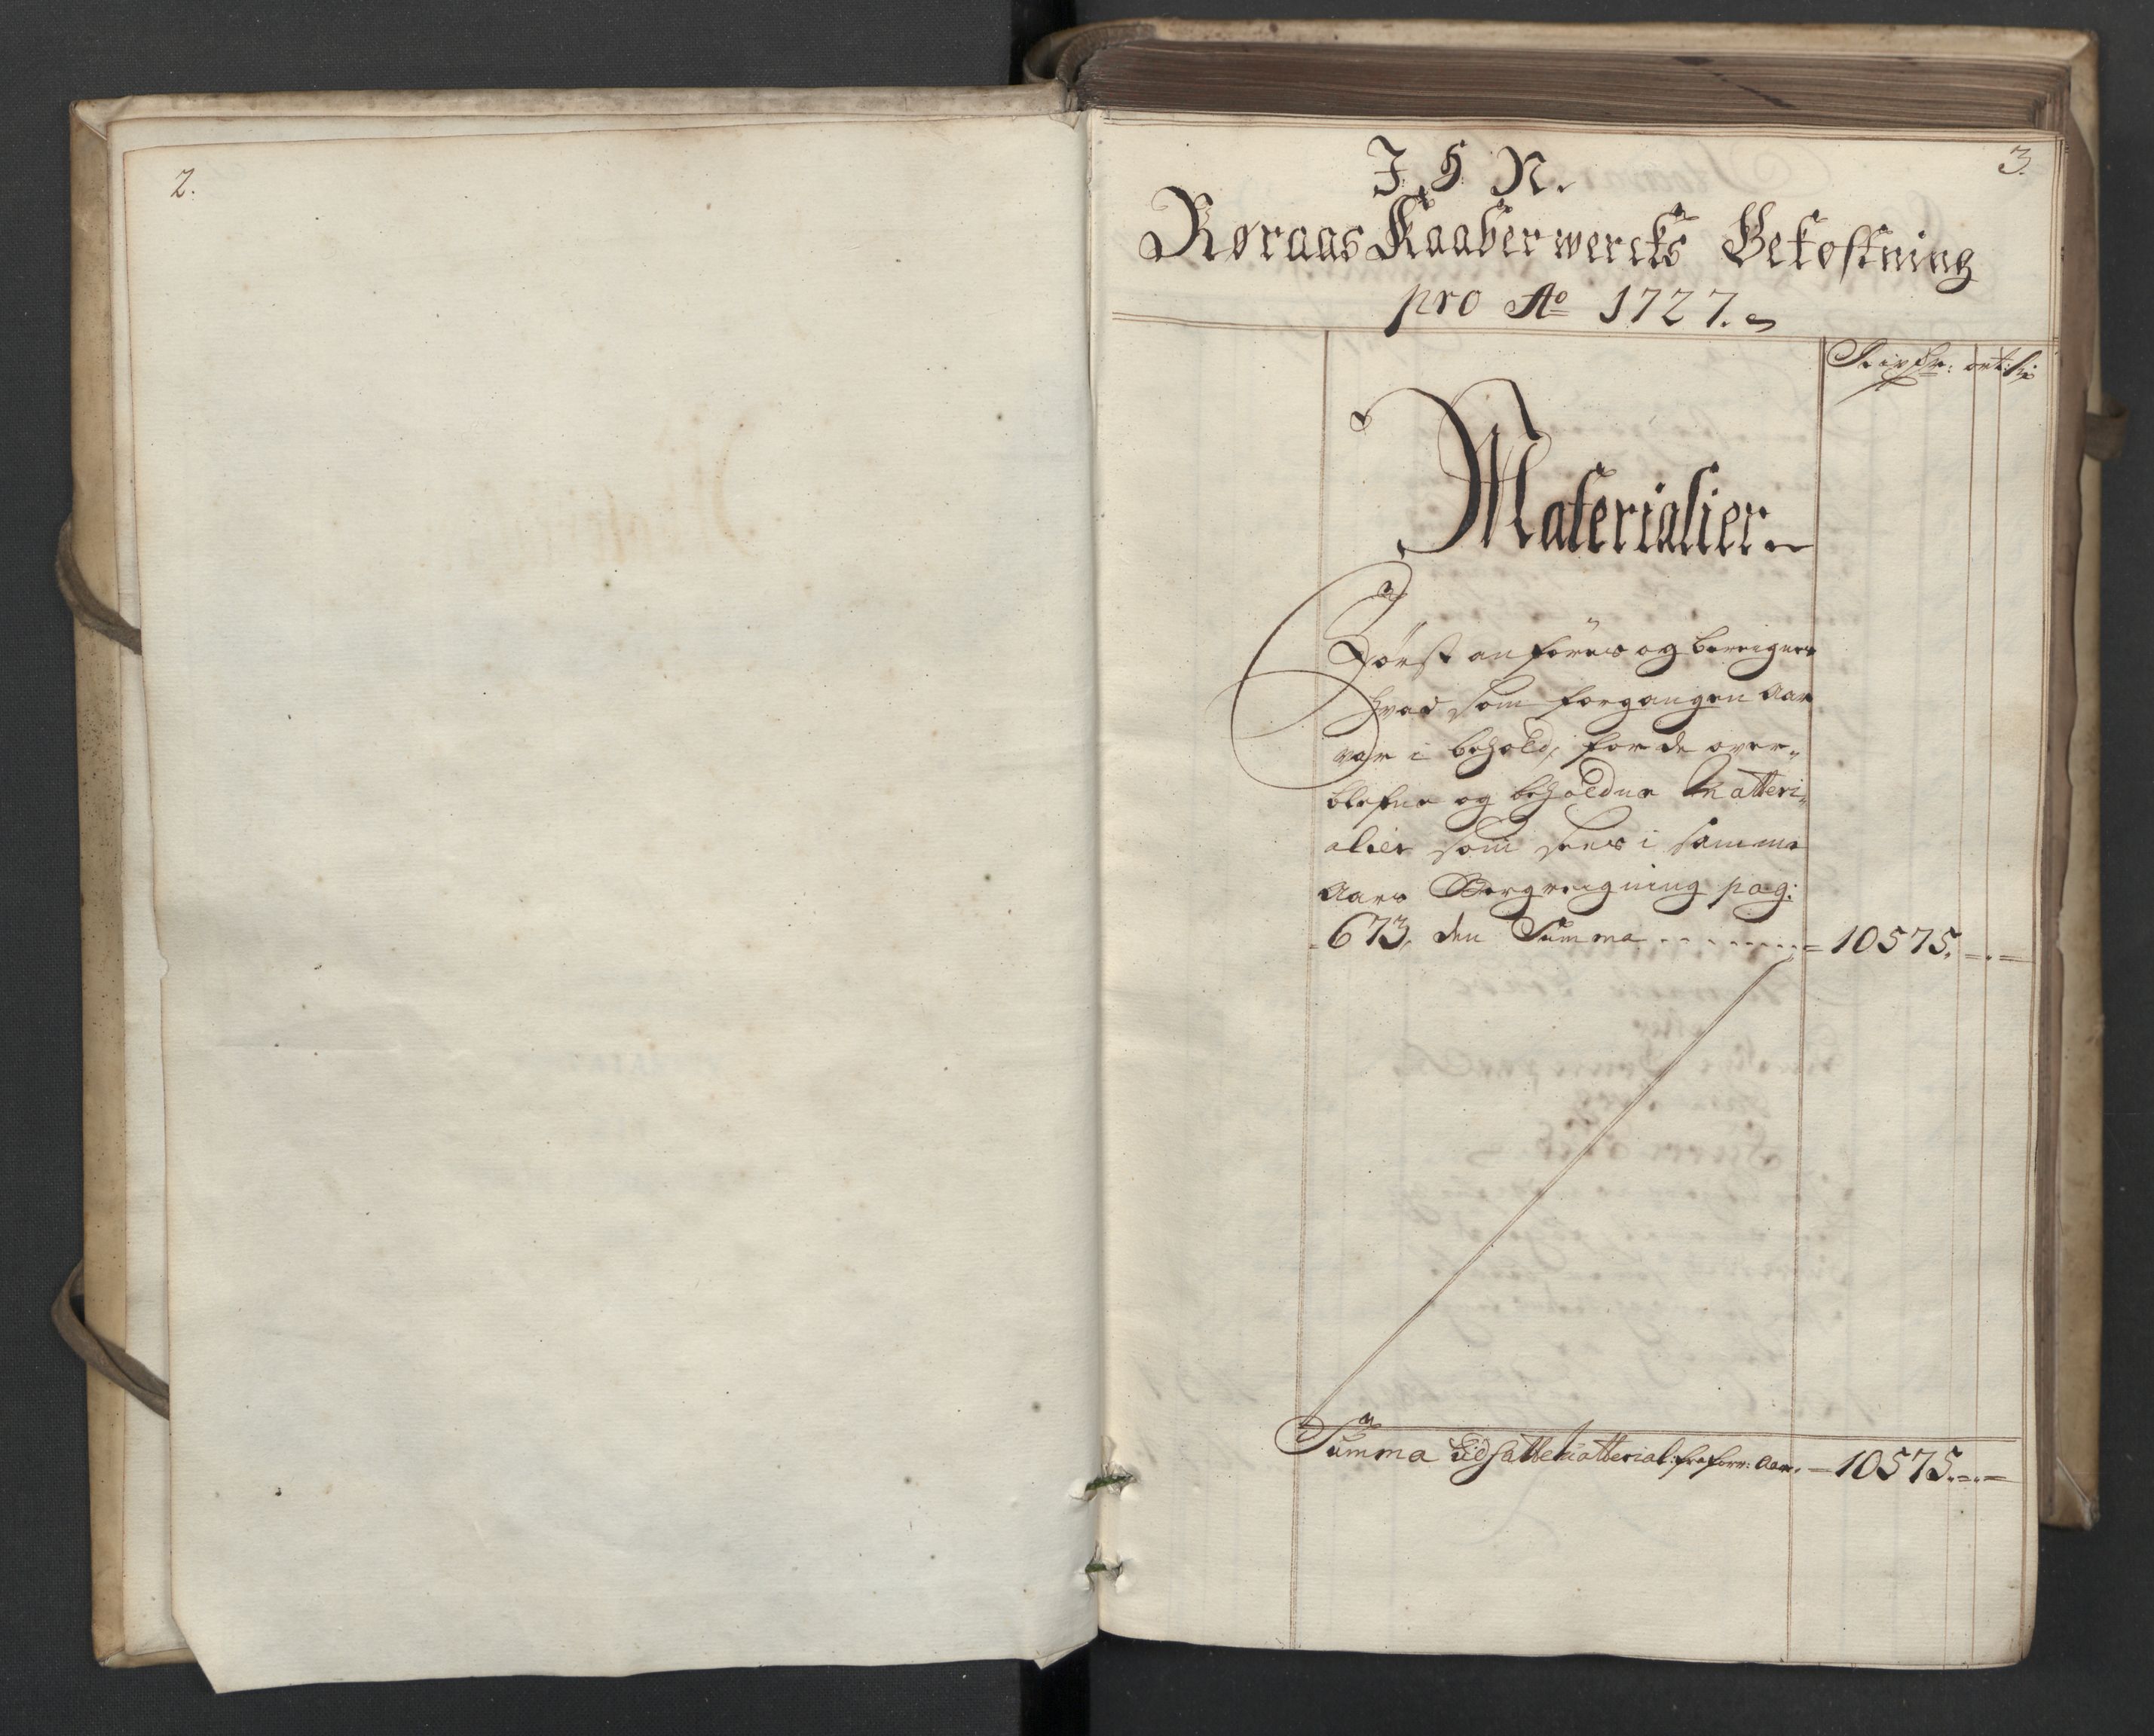 2.
3.
J. H. N.
Røraas Kaaberwercks Bekostning
pro Ao 1727.
ort: s:
Materialier
Først anføres og bereignes
hvad som forgangen Aar
var i behold, for de over„
blefne og beholdne Matteri„
alier som sees i samme
Aars Bergreigning pag:
673, den Summa - - - - - - - - = 10575. = . =
Summa Udsatte Matterial: fra forr: Aar. = 10575. = . =